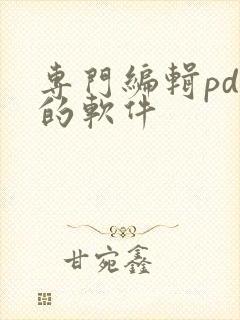 專門編輯pd
的軟件
甘宛鑫